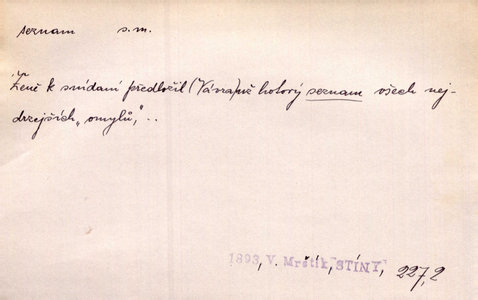 seznam s.m.
Ženě k snídani předložil (Vávra) už hotový seznam všech nej-
drzejších „omylů,“ ..
1893, V. Mrštík, "STÍNY", 227,2